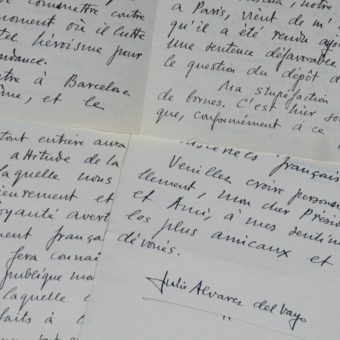 commettre contre
moment où il lutte
tel héroïsme pour
endance.
ntre à Barcelone
ême, et le
notre
à Paris, vient de m'
qu'il a été rendu
une sentence défavorable
la question du dépôt d
Ma stupéfaction
de bornes. C'est hier
que, conformément à ce
tout entière aura
attitude de la
laquelle nous
ieurement et
oyauté avert
ment françai
fera connai
publique
laquelle
faits à
français
Veuillez croire person
lement, mon cher Présid
et Ami, à mes sentim
les plus amicaux et
dévoués.
Julio Alvarez del Vayo